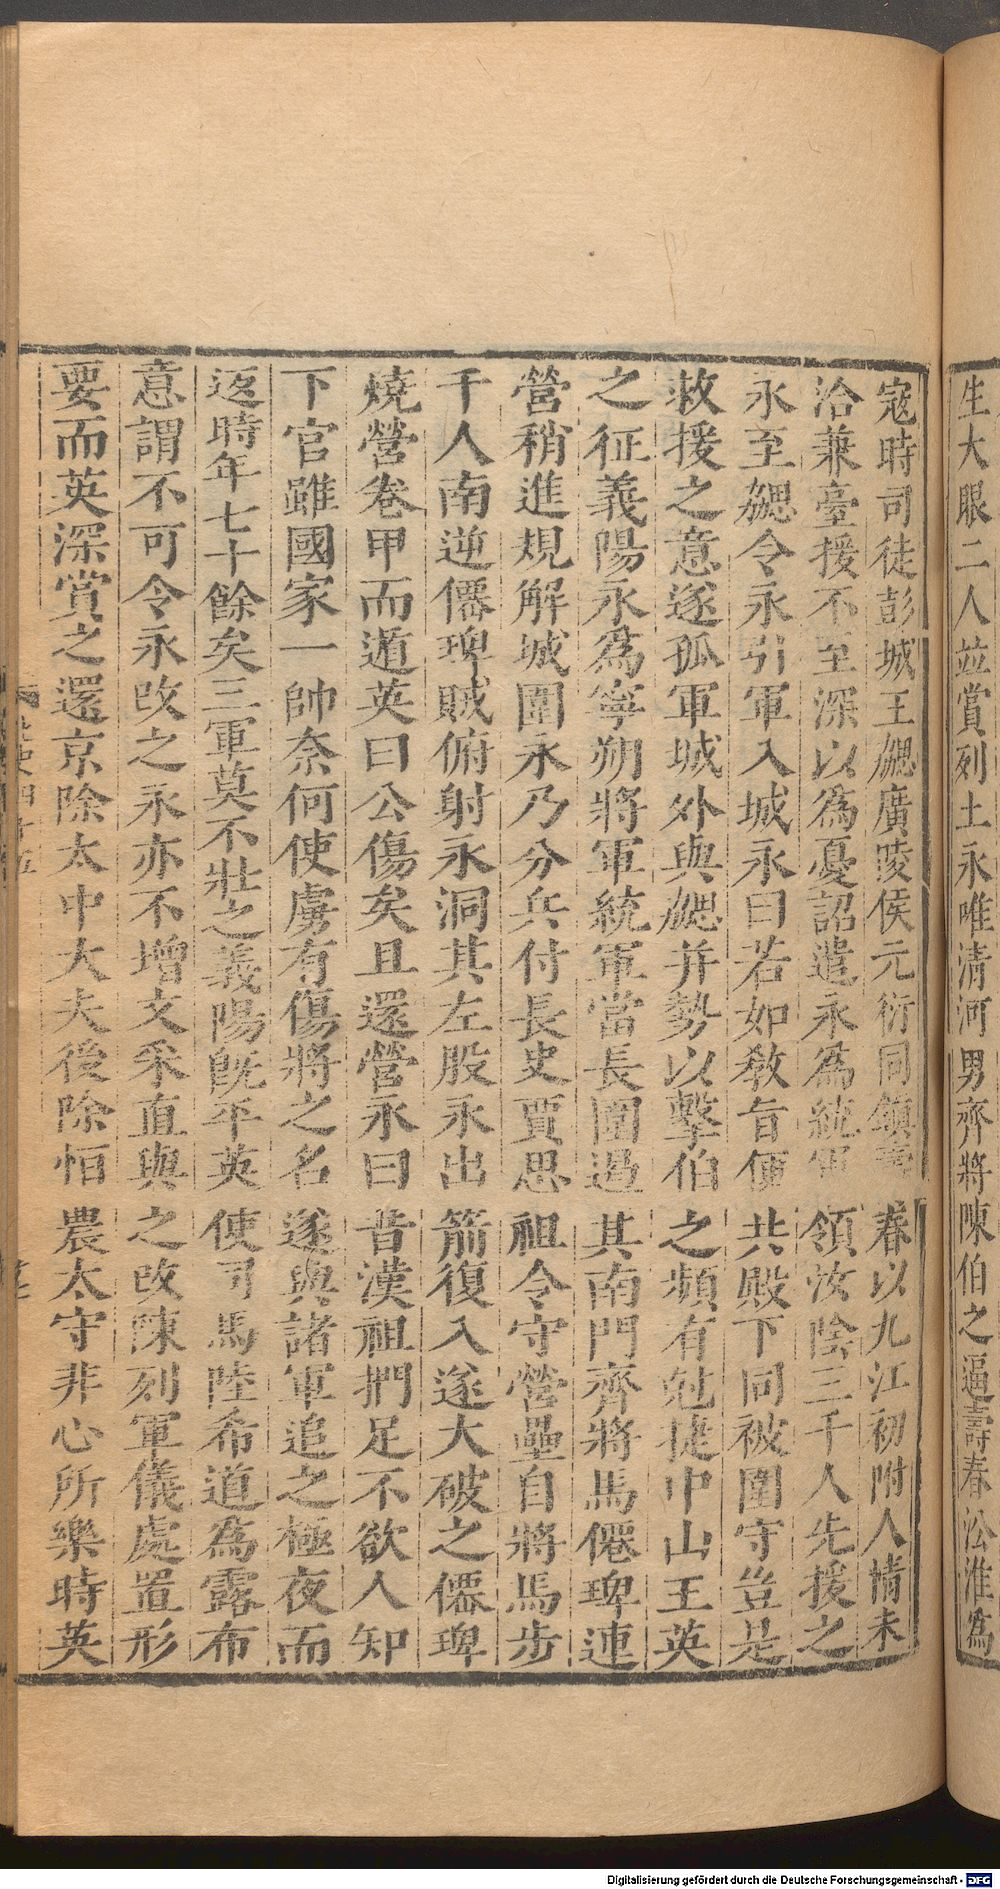 生大眼二人並賞列土永唯清河男齊將陳伯之逼壽春沿淮爲
寇時司徒彭城王勰廣陵侯元衍同鎮壽春以九江初附人情未
洽兼臺援不至深以爲憂詔遣永爲統軍領汝陰三千人先援之
永至勰令永引軍入城永曰若如教旨便共殿下同被圍守豈是
救援之意遂孤軍城外與勰并勢以擊伯之頻有剋捷中山王英
之征義陽永爲寧朔將軍統軍當長圍遏其南門齊將馬僊琕連
營稍進規解城圍永乃分兵付長史賈思祖令守營壘自將馬步
千人南逆僊琕賊俯射永洞其左股永出箭復入遂大破之僊琕
燒營卷甲而遁英曰公傷矣且還營永曰昔漢祖捫足不欲人知
下官雖國家一帥奈何使虜有傷將之名遂與諸軍追之極夜而
返時年七十餘矣三軍莫不壯之義陽旣平英使司馬陸希道爲露布
意謂不可令永改之永亦不增文采直與之改陳列軍儀處置形
要而英深賞之還京除太中大夫後除恒農太守非心所樂時英
Digitalisierung gefördert durch die Deutsche Forschungsgemeinschaft - DFG